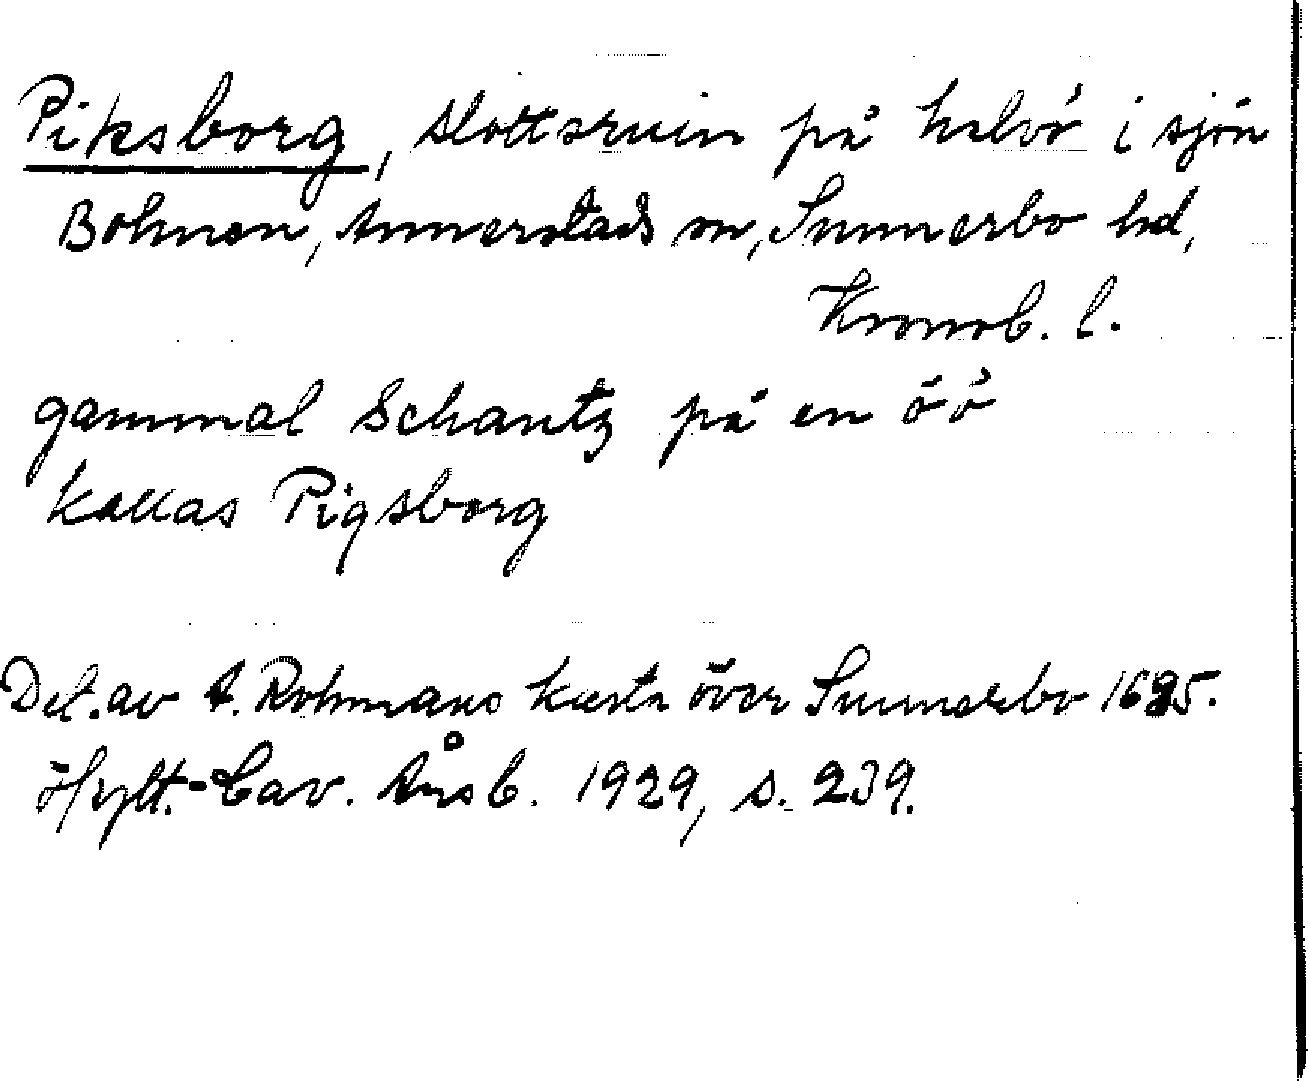 Piksborg, slottsruin på halvö i sjön
Bolmen, Annerstads sn, Sunnerbo hd,
Kronob. l.
gammal Schantz på en öö
kallas Pigsborg
Del. av A. Rohmans karta över Sunnerbo 1685.
Hylt.-Cav. Årsb. 1929, s. 239.